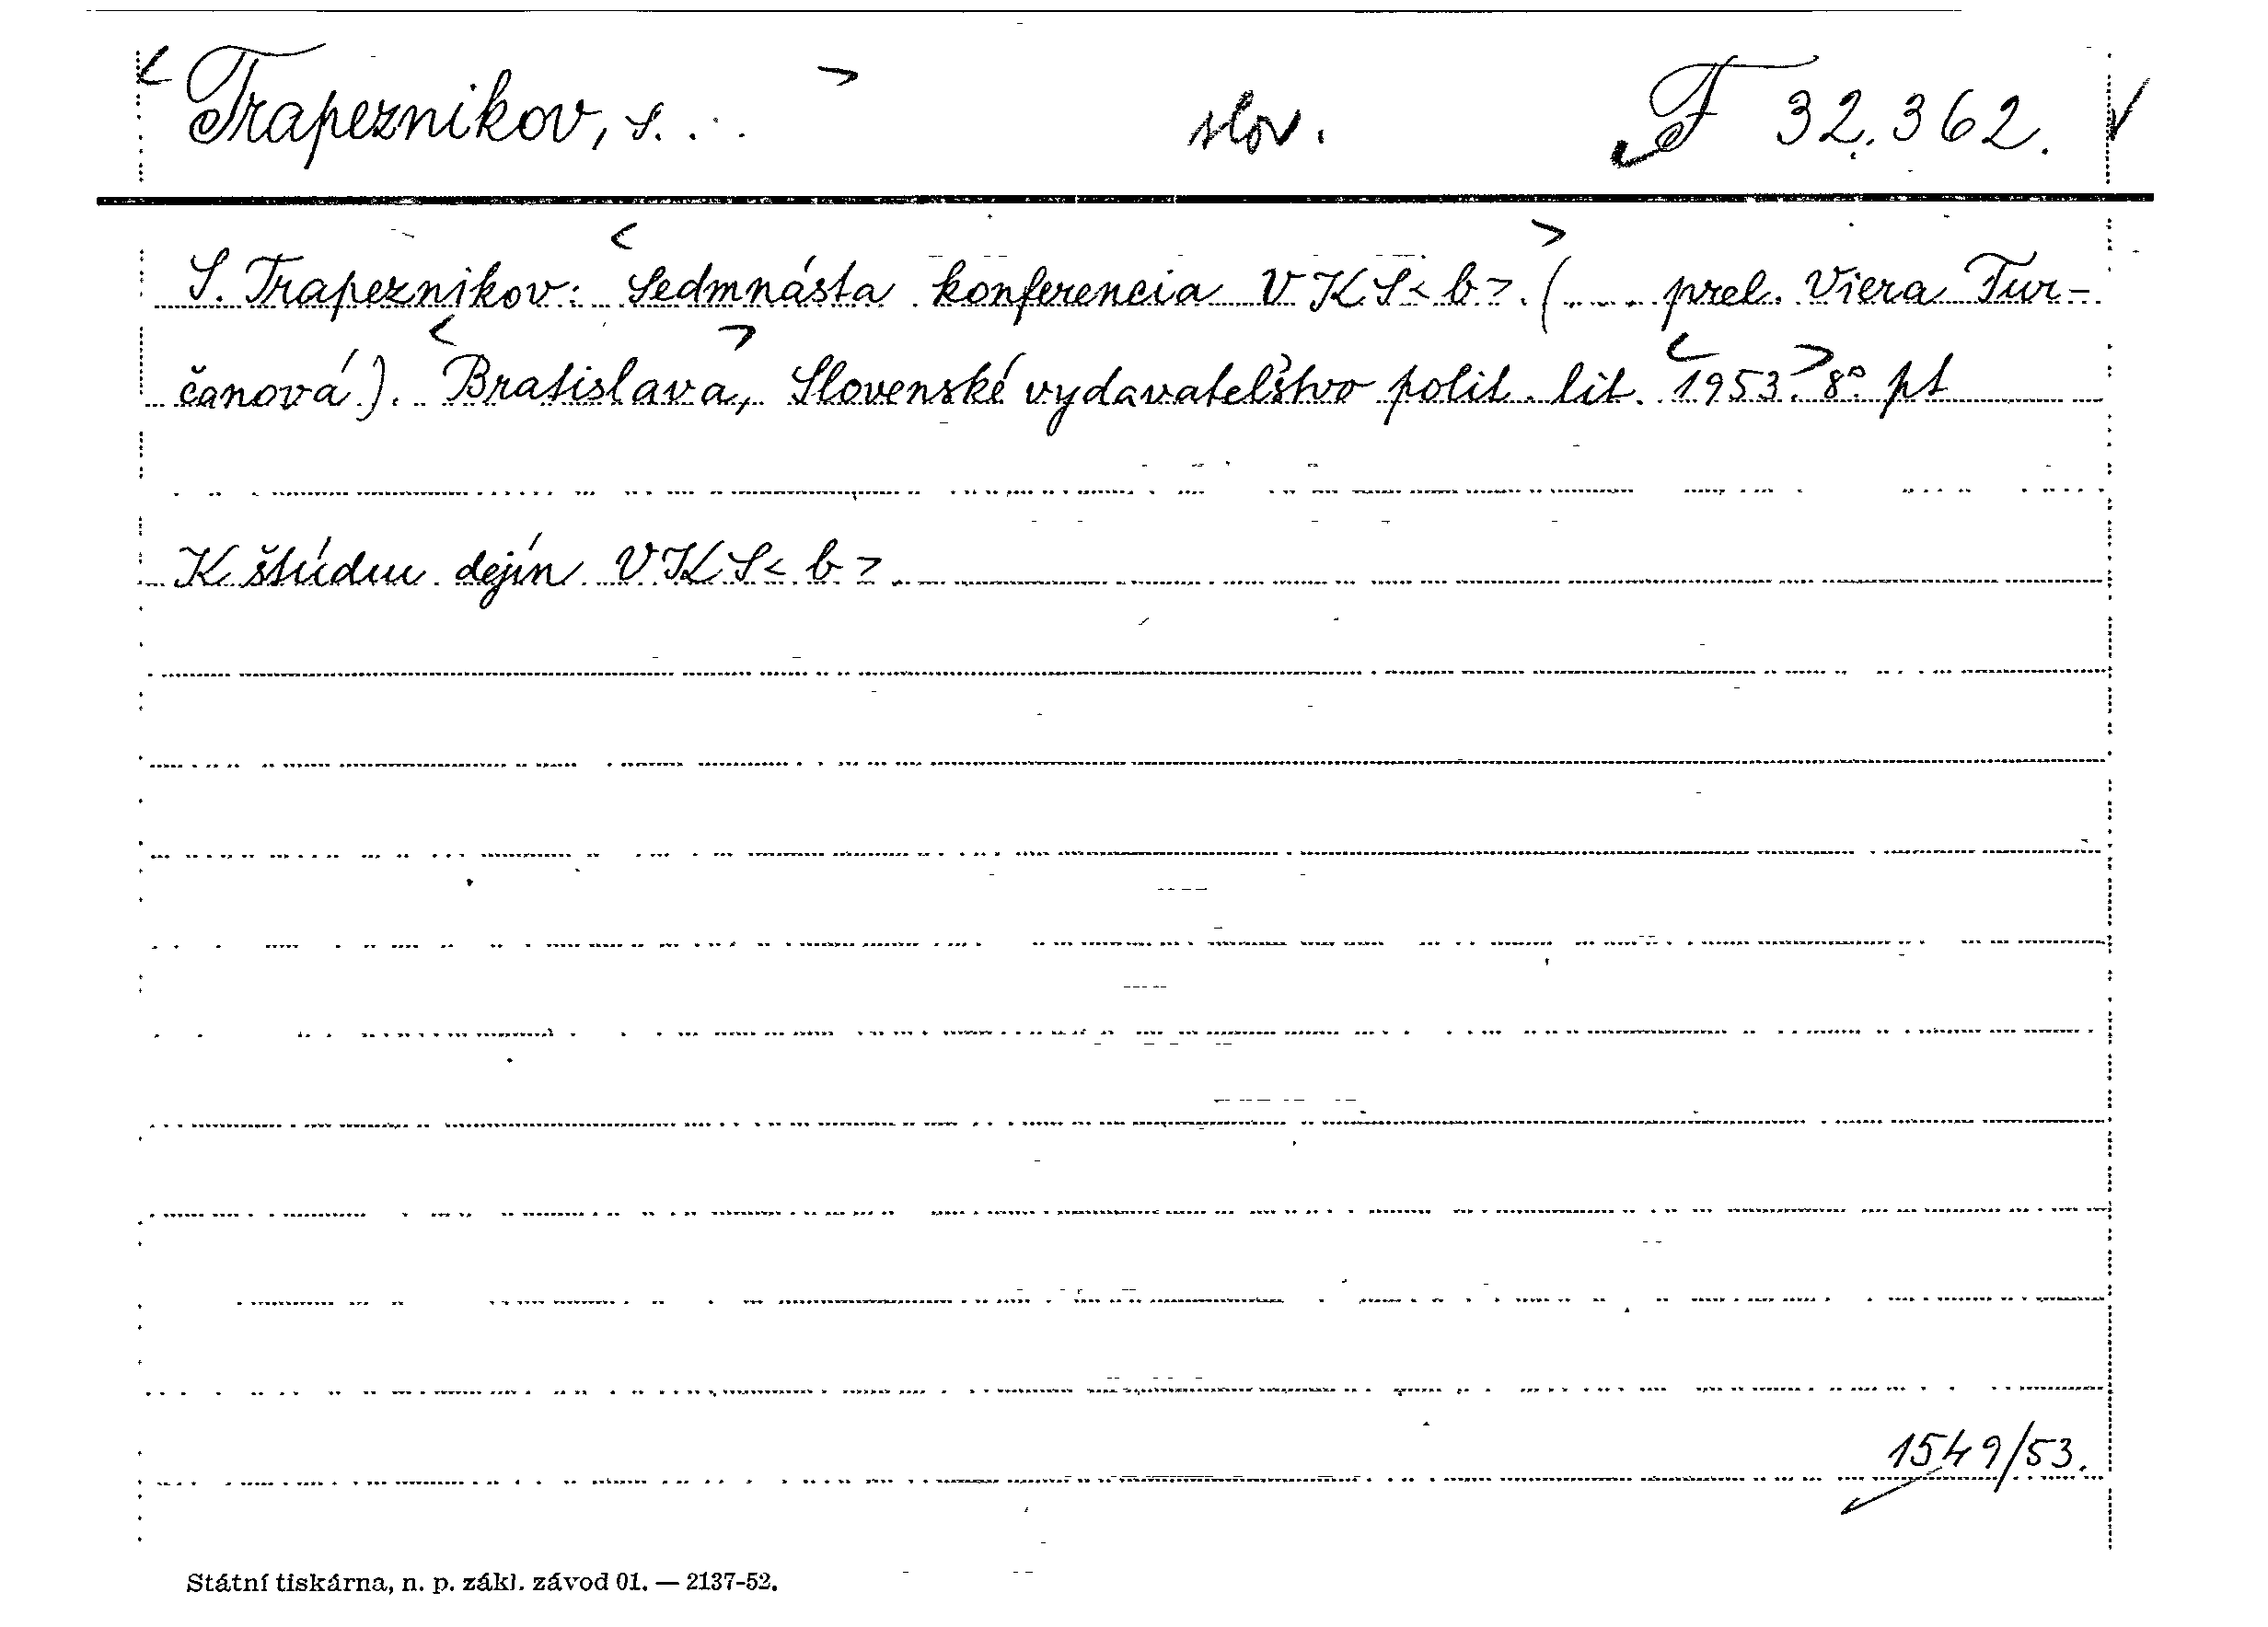 < Trapeznikov, S. . . > slov. F 32.362.
S. Trapeznikov: < Sedmnásta konferencia VKS<b> > (... prel. Viera Tur-
čanová). < Bratislava >, Slovenské vydavateľstvo polit. lit. < 1953 >. 8° pt
K štúdiu dejín VKS<b>.
1549/53.
Státní tiskárna, n. p. zákl. závod 01. — 2137-52.